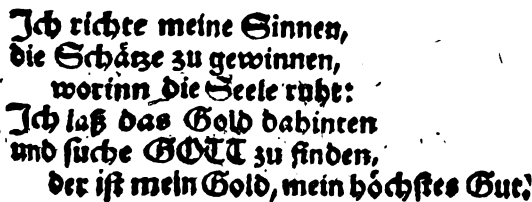 Ich richte meine Sinnen,
die Schätze zu gewinnen,
worinn die Seele ruht:
Ich laß das Gold dahinten
und suche GOTT zu finden,
der ist mein Gold, mein höchstes Gut.